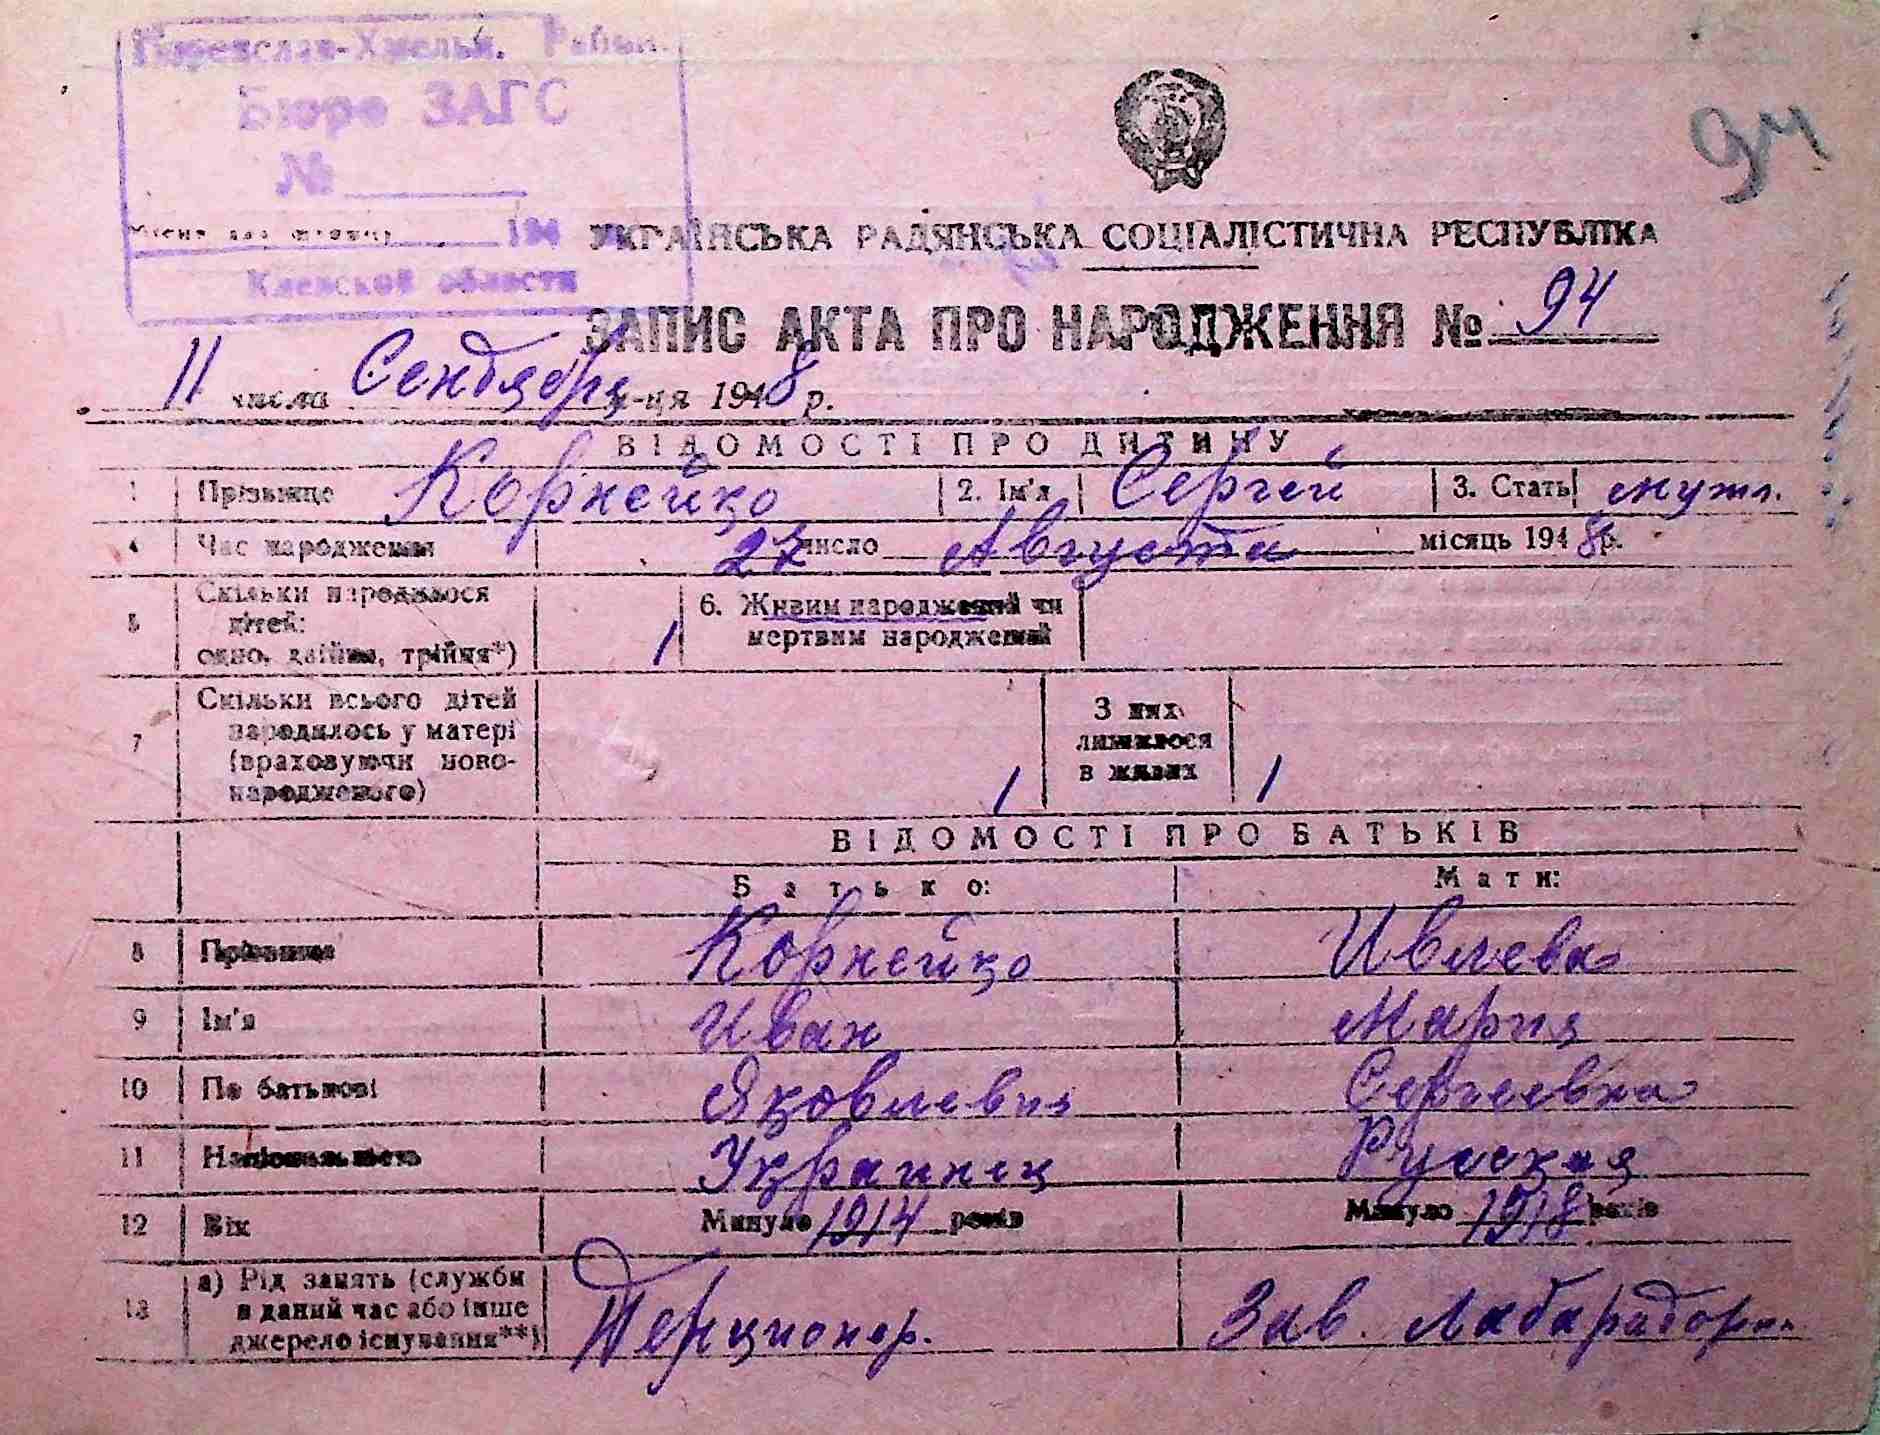 Переяслав-Хмельн. Район.
Бюро ЗАГС
№
194
Киевской области
94
УКРАЇНСЬКА РАДЯНСЬКА СОЦІАЛІСТИЧНА РЕСПУБЛІКА
ЗАПИС АКТА ПРО НАРОДЖЕННЯ № 94
11 числа Сентября м-ця 1948 р.
ВІДОМОСТІ ПРО ДИТИНУ
1 Прізвище Корнейко 2. Ім'я Сергей 3. Стать мужл.
4 Час народження 27 число Августа місяць 1948 р.
5 Скільки народилося
дітей:
одно, двійня, трійня*) 1
6. Живим народжений чи
мертвим народжений
7 Скільки всього дітей
народилось у матері
(враховуючи ново-
народженого) 1
З них
лишилося
в живих 1
ВІДОМОСТІ ПРО БАТЬКІВ
Батько: Мати:
8 Прізвище Корнейко Ивлева
9 Ім'я Иван Мария
10 По батькові Яковлевич Сергеевна
11 Національність Украинец Руская
12 Вік Минуло 1914 років Минуло 1918 років
13 а) Рід занять (служби
в даний час або інше
джерело існування**) Пенционер. Зав. Лабарадори